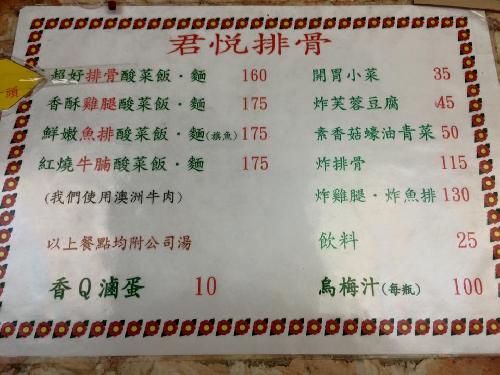 君悦排骨
超好排骨酸菜飯·麵 160
香酥雞腿酸菜飯·麵 175
鮮嫩魚排酸菜飯·麵(旗魚) 175
紅燒牛腩酸菜飯·麵 175
(我們使用澳洲牛肉)
以上餐點均附公司湯
香Q滷蛋 10
開胃小菜 35
炸芙蓉豆腐 45
素香菇蠔油青菜 50
炸排骨 115
炸雞腿·炸魚排 130
飲料 25
烏梅汁(每瓶) 100
頭